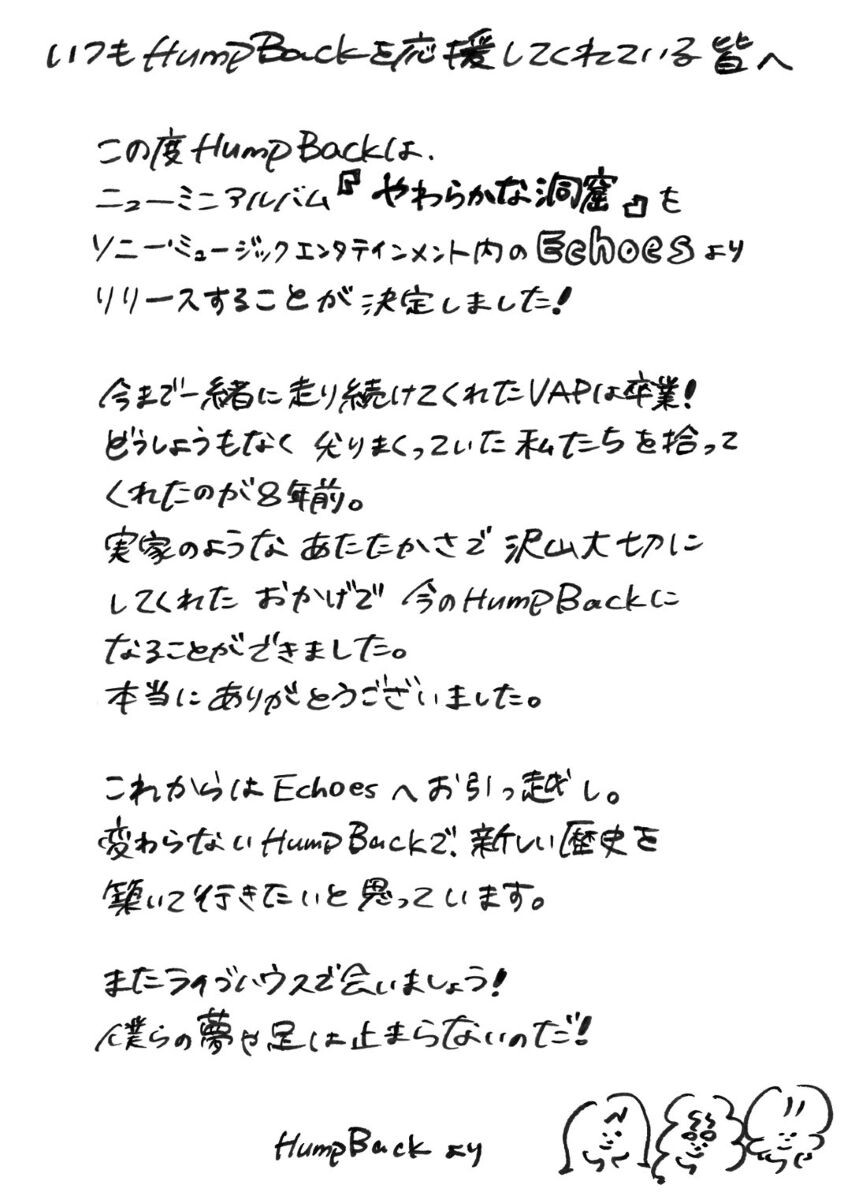 いつもHump Backを応援してくれている皆へ
この度Hump Backは、
ニューミニアルバム『やわらかな洞窟』を
ソニー・ミュージックエンタテインメント内のEchoesより
リリースすることが決定しました!
今まで一緒に走り続けてくれたVAPは卒業!
どうしようもなく尖りまくっていた私たちを拾って
くれたのが8年前。
実家のようなあたたかさで沢山大切に
してくれたおかげで今のHump Backに
なることができました。
本当にありがとうございました。
これからはEchoesへお引っ越し。
変わらないHump Backで、新しい歴史を
築いて行きたいと思っています。
またライブハウスで会いましょう!
僕らの夢や足は止まらないのだ!
Hump Backより